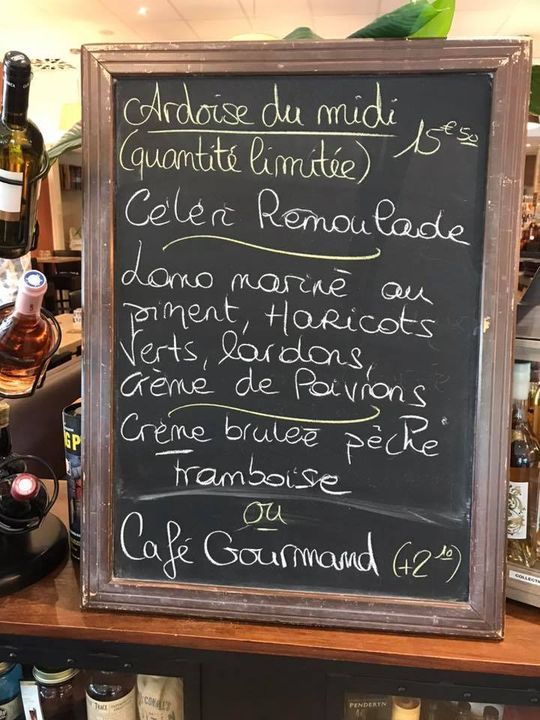 Ardoise du midi
15€50
(quantité limitée)
Céleri Remoulade
Lomo mariné au
piment, Haricots
verts, lardons,
crème de Poivrons
Crème brulée pêche
framboise
ou
Café Gourmand (+2€10)
GP
COLLECTI
PENDERYN